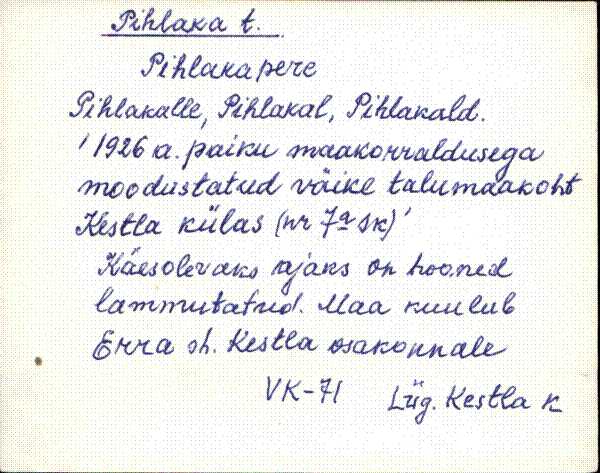 Pihlaka t.
Pihlakapere
Pihlakalle, Pihlakal, Pihlakald.
'1926 a. paiku maakorraldusega
moodustatud väike talumaakoht
Kestla külas (nr 7a sk)'
Käesolevaks ajaks on hooned
lammutatud. Maa kuulub
Erra sh. Kestla osakonnale
VK-71 Lüg. Kestla k